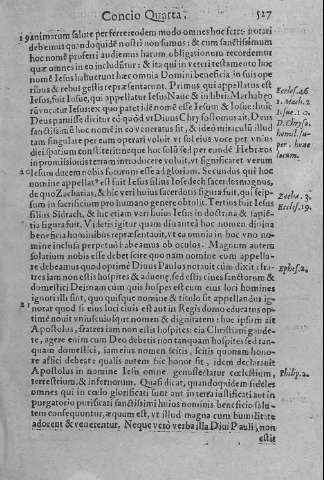 Concio Quarta. 527
19 animarum salute perferre: eodem modo omnes hoc scire & notari
debemus quandoquidē nostri non sumus: & cum sanctissimum
hoc nomē proferri audiemus harum obligationum recordemur
quæ omnes in eo includūtur: & ita qui in veteri testamento hoc
nomē Iesus habuerunt hæc omnia Domini beneficia in suis ope
ribus & rebus gestis repræsentarunt. Primus qui appellatus est
Iesus, fuit Iosue, qui appellatur Iesus Naue: & in libri. Machabęo
rū vocatur Iesus: ex quo patet idē nomē esse Iesum & Iosue: huic
Deus panisse dicitur eò quòd vt Diuus Chrysostomus ait, Deus
sanctissimū hoc nomē in eo veneratus sit, & ideo miraculū illud
tam singulare per eum operari voluit vt sol eius voce per vnius
diei spatium consisteret: neque hoc solū sed per eundē Hebræos
in promissionis terram introducere voluit, vt significaret verum
20 Iesum ducem nobis futurum esse ad gloriam. Secundus qui hoc
nomine appellatus est fuit Iesus filius Iosedech sacerdos magnus,
de quo Zacharias, & hic veri huius sacerdotis figura fuit, qui seip-
sum in sacrificium pro humano genere obtulit. Tertius fuit Iesus
filius Sidrach, & hic etiam veri huius Iesus in doctrina & sapiē-
tia figura fuit. Videtis igitur quam diu antea hoc nomen diuina
beneficia hominibus repræsentauit, vt ea omnia in hoc vno no-
mine inclusa perpetuò habeamus ob oculos. Magnum autem
solatium nobis esse debet scire quo nam nomine eum appella-
re debeamus quod optimè Diuus Paulus notauit cùm dixit: fra-
tres iam non estis hospites & aduenę, sed estis ciues sanctorum &
domestici Dei: nam cùm quis hospes est eum eius loci homines
ignoti illi sunt, quo quisque nomine & titulo sit appellandus ig-
21 norat quod si eius loci ciuis est aut in Regis domo educatus op-
timè nouit vniuscuiusque nomen & dignitatem: hoc ipsum ait
Apostolus, fratres iam non estis hospites: eia Christiani gaude-
te, agere enim cum Deo debetis non tanquam hospites sed tan-
quam domestici, iam eius nomen scitis, scitis quonam hono-
re affici debeat: qualis autem hic honor sit, idem declarauit
Apostolus in nomine Iesu omne genuflectatur cœlestium,
terrestrium, & infernorum. Quasi dicat, quandoquidem fideles
omnes qui in cœlo glorificati sunt aut in terra iustificati aut in
purgatorio purificati sanctissimi huius nominis beneficio salu-
tem consequuntur, æquum est, vt illud magna cum humilitate
adorent & venerentur. Neque verò verba illa Diui Pauli, non
estis
Ecclesi. 46
2. Mach. 2
Iosue. 10.
D. Chryso.
homil. su-
per hunc
locum.
Zacha. 3.
Eccles. 19.
Ephes. 2.
Philip. 2.